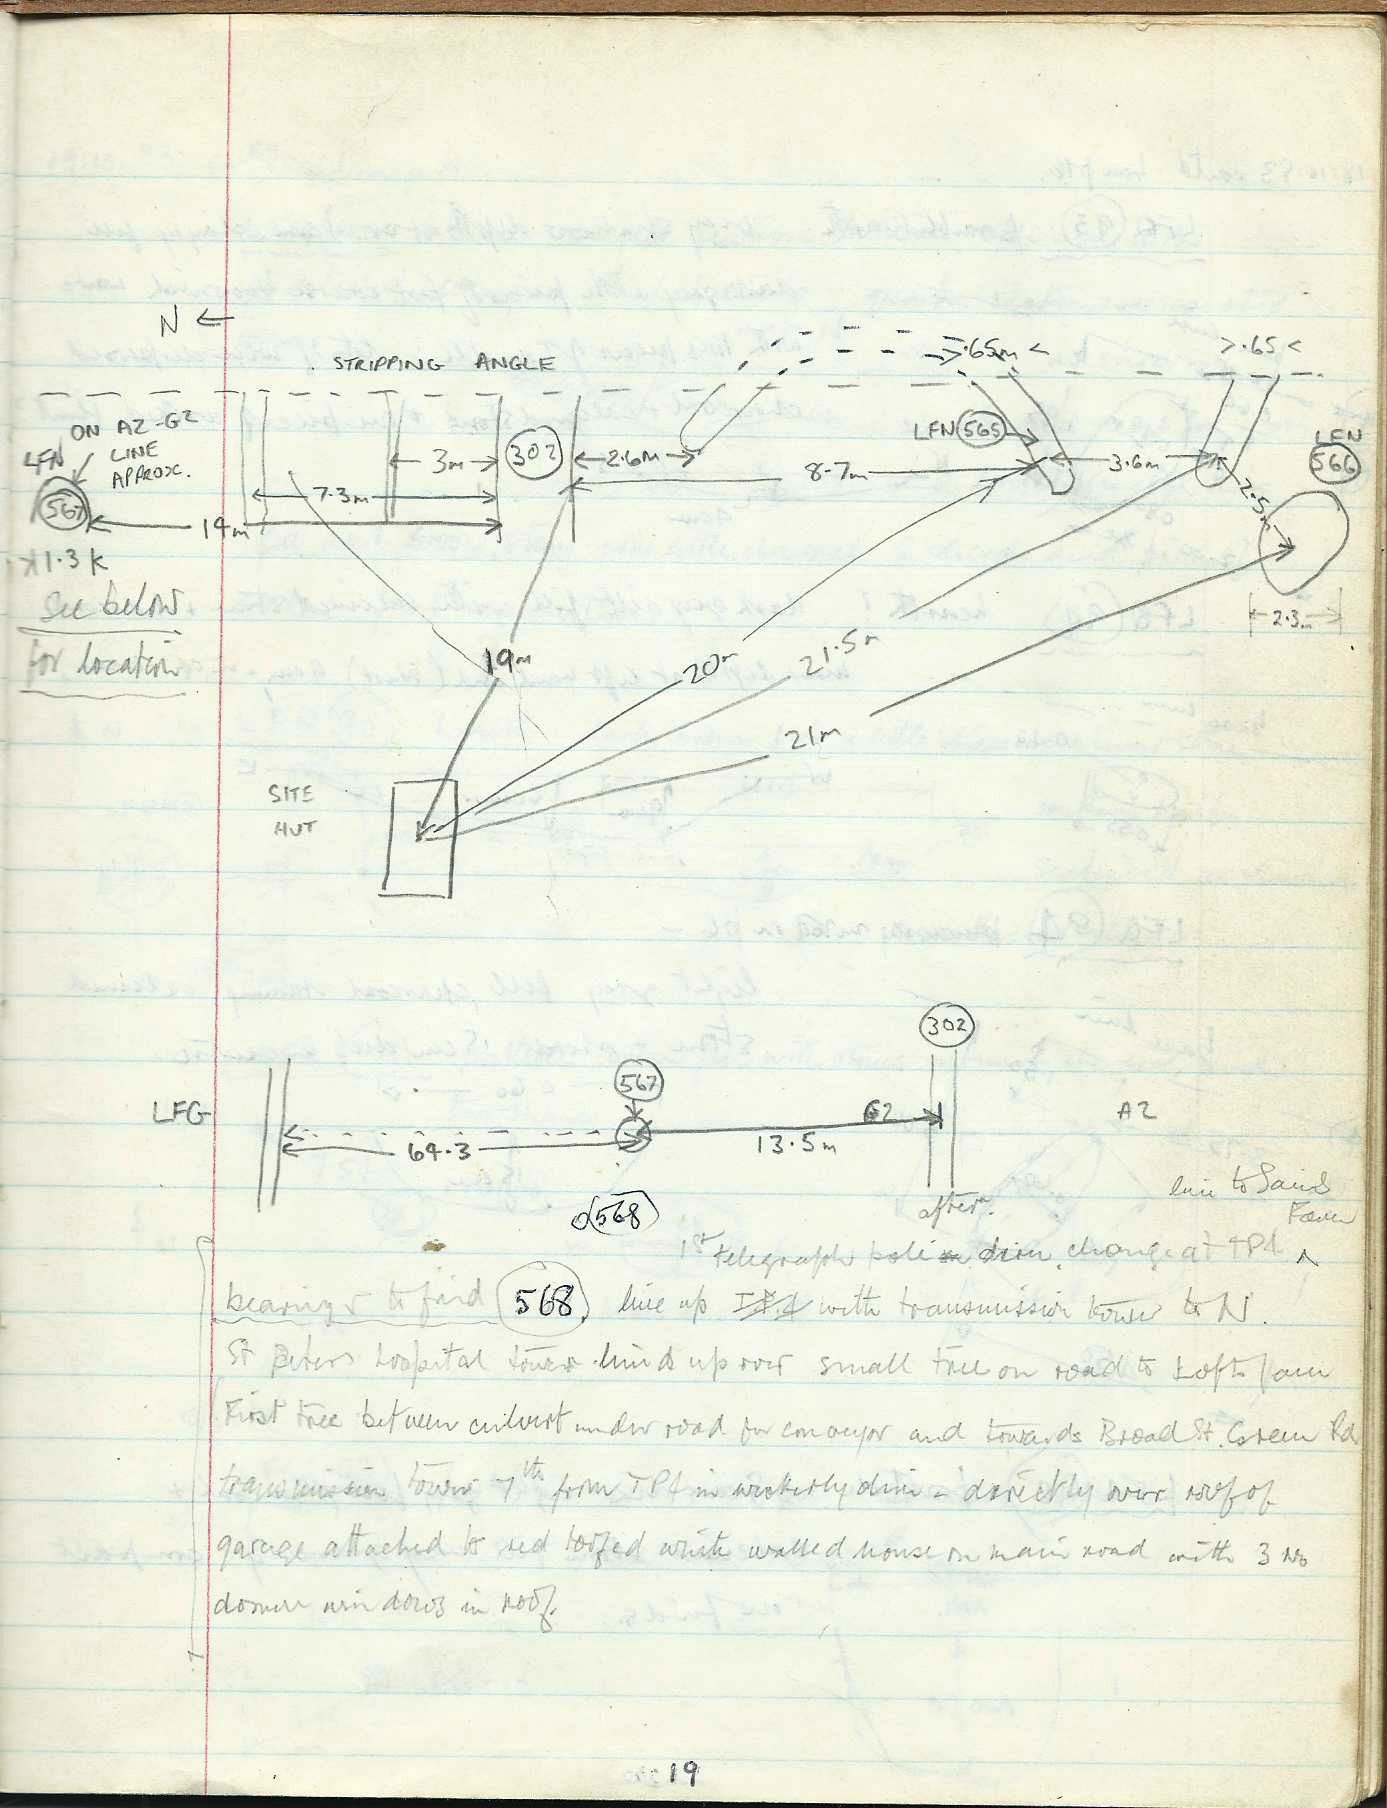 N ←
STRIPPING ANGLE
.65m
>.65<
ON AZ-G2
LINE
APPROX.
LFN
567
LFN 565
LFN
566
3m
302
2.6m
8.7m
3.6m
2.5m
7.3m
14m
1.3
See below
for location
2.3m
19m
20m
21.5m
21m
SITE
HUT
302
567
LFG
G2
A2
64.3
13.5m
568
after
line to Sains
Farm
1st telegraph pole dirn. change at TP4
bearings to find 568, line up with transmission tower to N.
St Peters hospital tower lines up over small tree on road to Lofts farm
First tree between culvert under road for conveyor and towards Broad St. Green Rd
transmission tower 7th from TP4 in westerly dirn - directly over roof of
garage attached to red roofed white walled house on main road with 3 no
dormer windows in roof.
19